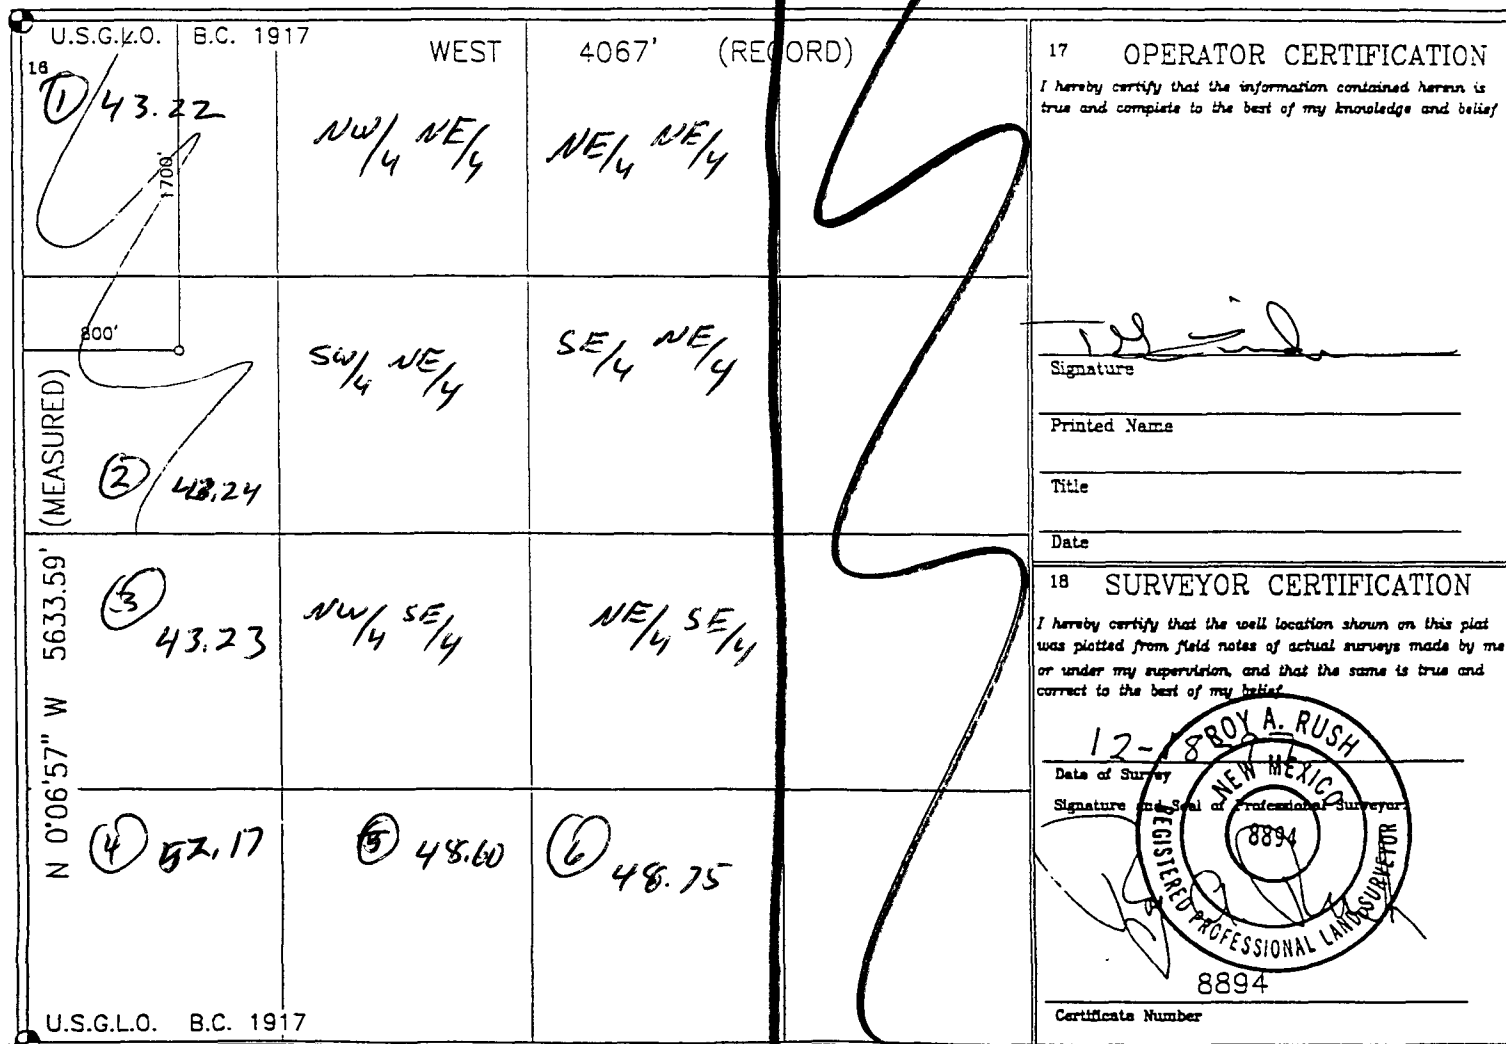 U.S.G.L.O. B.C. 1917
WEST 4067' (RECORD)
16
1 43.22
NW/4 NE/4
NE/4 NE/4
1700'
800'
SW/4 NE/4
SE/4 NE/4
2 43.24
N 0°06'57" W 5633.59' (MEASURED)
3 43.23
NW/4 SE/4
NE/4 SE/4
4 52.17
5 48.60
6 48.75
U.S.G.L.O. B.C. 1917
17 OPERATOR CERTIFICATION
I hereby certify that the information contained herein is
true and complete to the best of my knowledge and belief
Signature
Printed Name
Title
Date
18 SURVEYOR CERTIFICATION
I hereby certify that the well location shown on this plat
was plotted from field notes of actual surveys made by me
or under my supervision, and that the same is true and
correct to the best of my belief.
12-18
Date of Survey
Signature and Seal of Professional Surveyor:
ROY A. RUSH
NEW MEXICO
8894
REGISTERED PROFESSIONAL LAND SURVEYOR
8894
Certificate Number